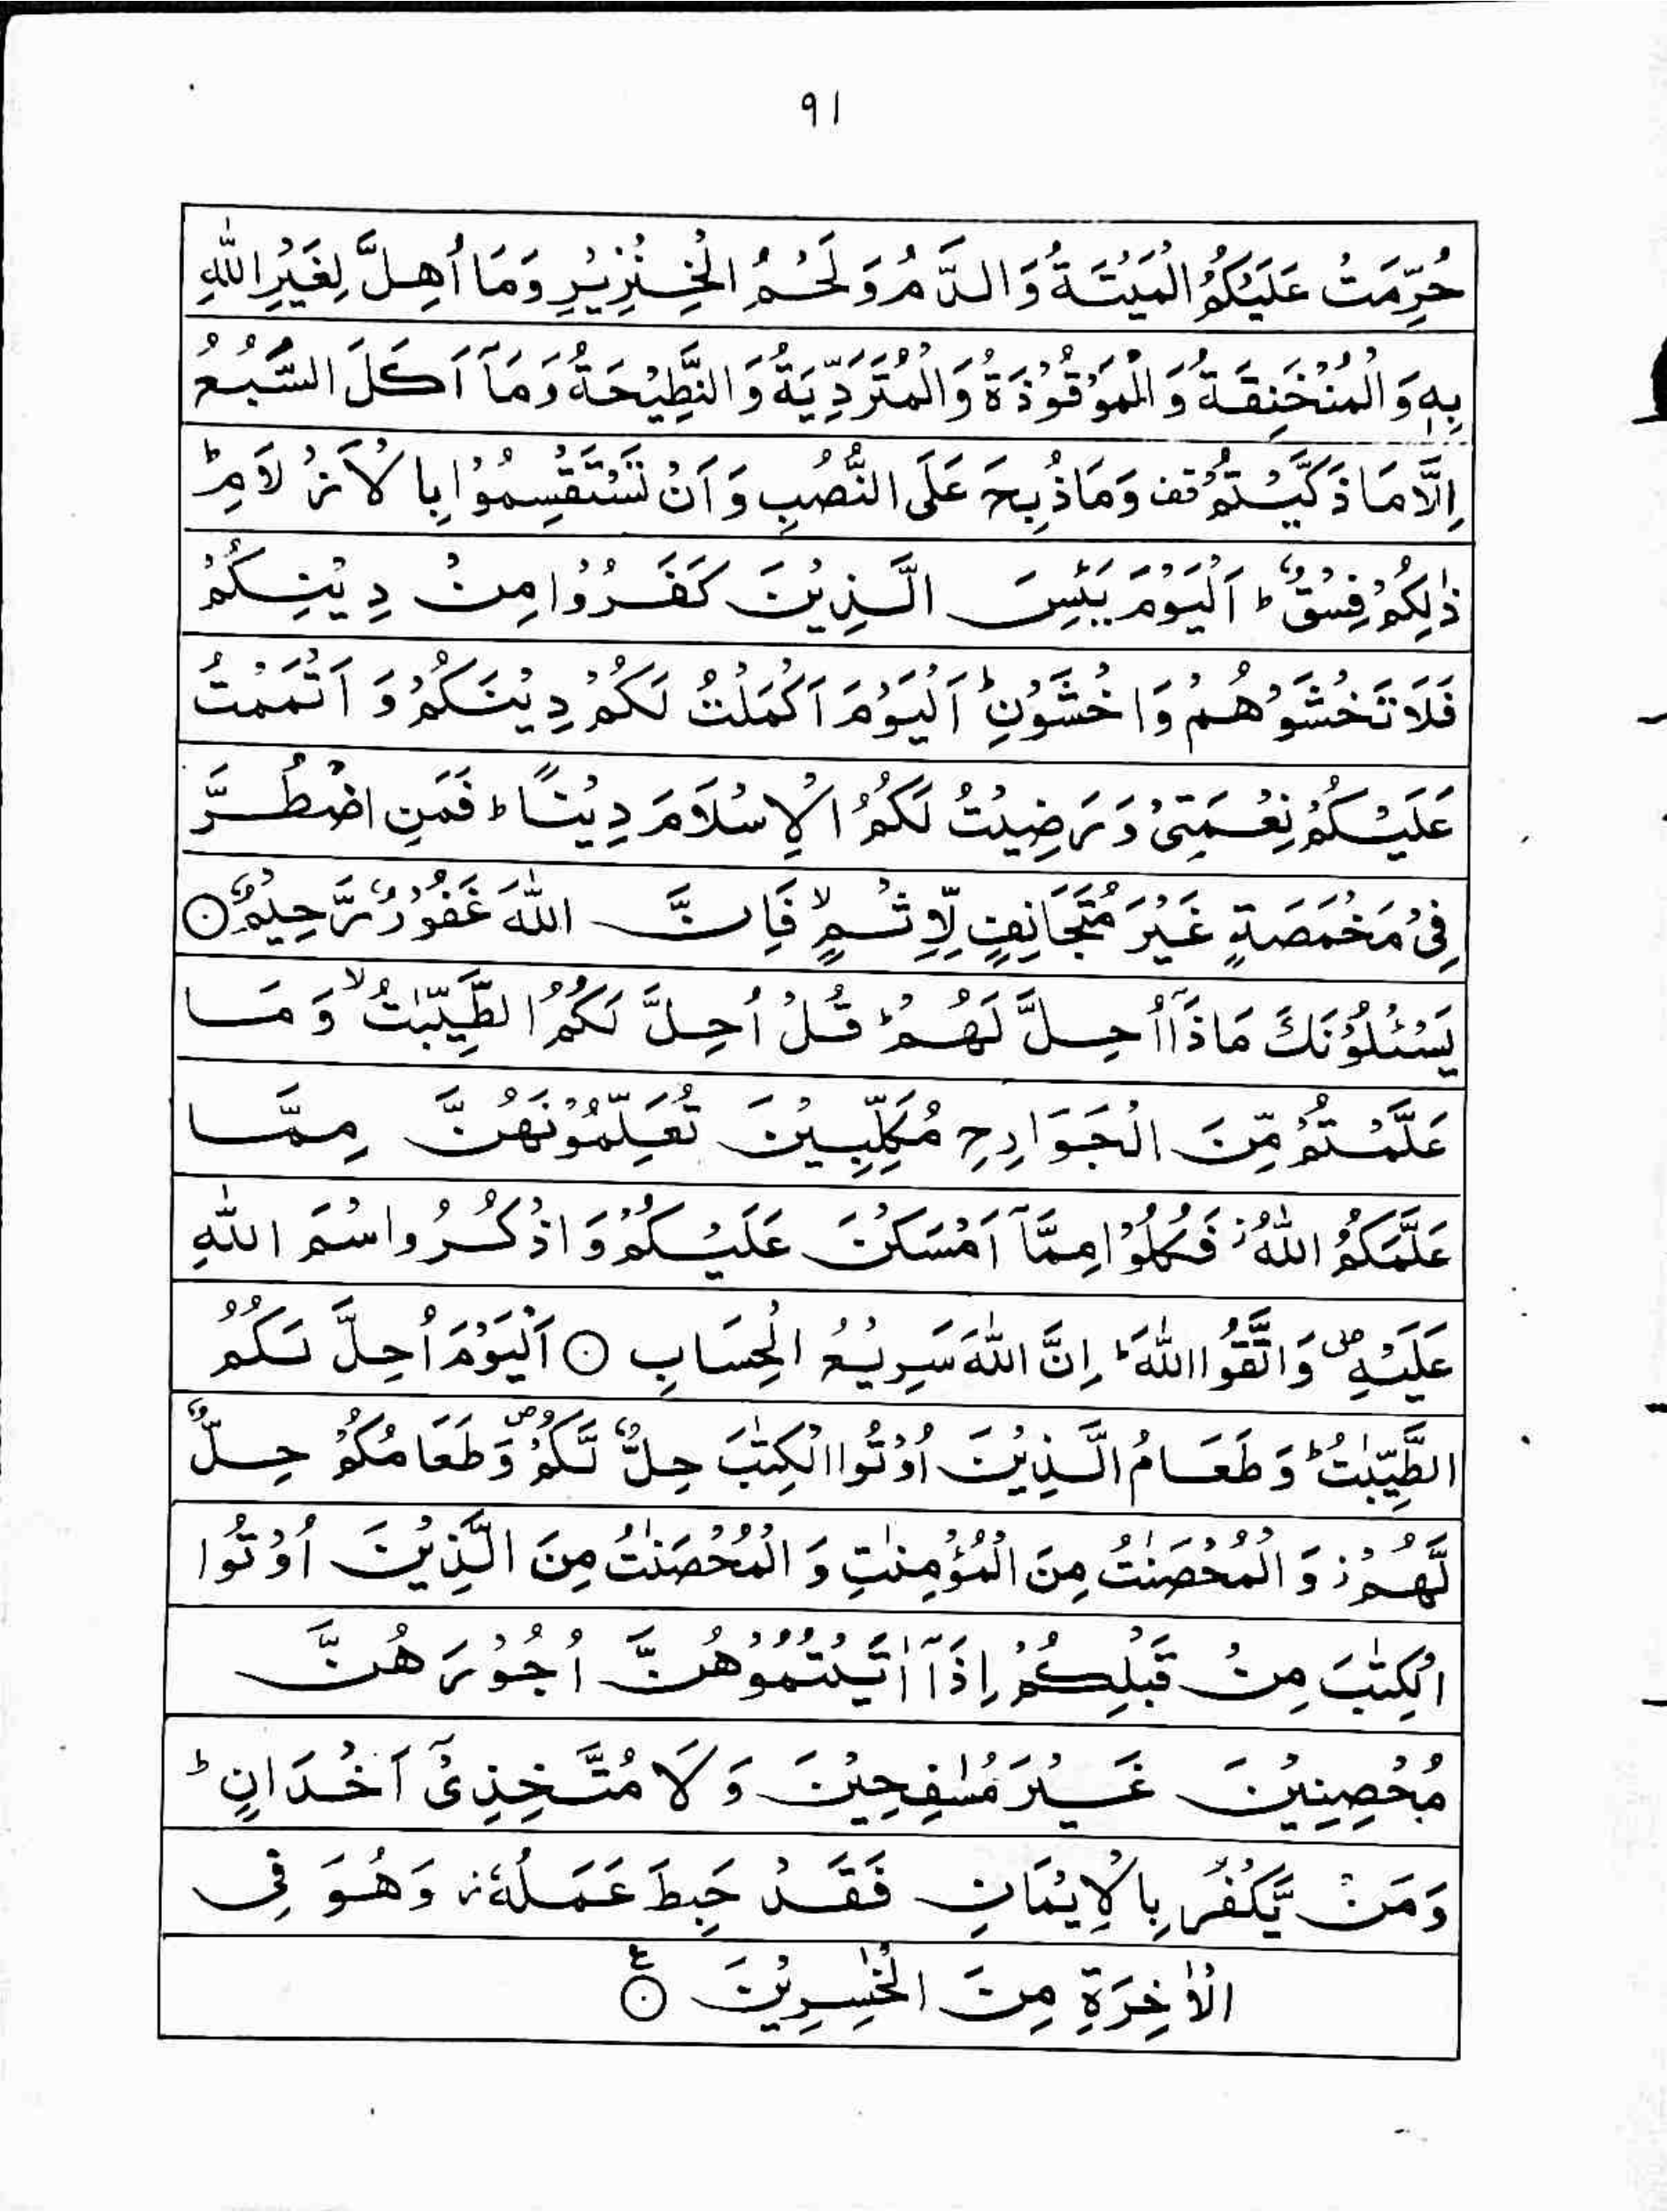 ۹۱
حُرِّمَتْ عَلَيْكُمُ الْمَيْتَةُ وَالدَّمُ وَلَحْمُ الْخِنْزِيْرِ وَمَا اُهِلَّ لِغَيْرِ اللّٰهِ
بِهٖ وَالْمُنْخَنِقَةُ وَالْمَوْقُوْذَةُ وَالْمُتَرَدِّيَةُ وَالنَّطِيْحَةُ وَمَآ اَكَلَ السَّبُعُ
اِلَّا مَا ذَكَّيْتُمْ قف وَمَا ذُبِحَ عَلَى النُّصُبِ وَاَنْ تَسْتَقْسِمُوْا بِالْاَزْلَامِ ؕ
ذٰلِكُمْ فِسْقٌ ؕ اَلْيَوْمَ يَئِسَ الَّذِيْنَ كَفَرُوْا مِنْ دِيْنِكُمْ
فَلَا تَخْشَوْهُمْ وَاخْشَوْنِ ؕ اَلْيَوْمَ اَكْمَلْتُ لَكُمْ دِيْنَكُمْ وَ اَتْمَمْتُ
عَلَيْكُمْ نِعْمَتِىْ وَرَضِيْتُ لَكُمُ الْاِسْلَامَ دِيْنًا ؕ فَمَنِ اضْطُرَّ
فِىْ مَخْمَصَةٍ غَيْرَ مُتَجَانِفٍ لِّاِثْمٍ ۙ فَاِنَّ اللّٰهَ غَفُوْرٌ رَّحِيْمٌ ۝
يَسْئَلُوْنَكَ مَاذَآ اُحِلَّ لَهُمْ ؕ قُلْ اُحِلَّ لَكُمُ الطَّيِّبٰتُ ۙ وَمَا
عَلَّمْتُمْ مِّنَ الْجَوَارِحِ مُكَلِّبِيْنَ تُعَلِّمُوْنَهُنَّ مِمَّا
عَلَّمَكُمُ اللّٰهُ ز فَكُلُوْا مِمَّآ اَمْسَكْنَ عَلَيْكُمْ وَاذْكُرُوا اسْمَ اللّٰهِ
عَلَيْهِ ۖ وَاتَّقُوا اللّٰهَ ؕ اِنَّ اللّٰهَ سَرِيْعُ الْحِسَابِ ۝ اَلْيَوْمَ اُحِلَّ لَكُمُ
الطَّيِّبٰتُ ؕ وَطَعَامُ الَّذِيْنَ اُوْتُوا الْكِتٰبَ حِلٌّ لَّكُمْ ص وَطَعَامُكُمْ حِلٌّ
لَّهُمْ ز وَالْمُحْصَنٰتُ مِنَ الْمُؤْمِنٰتِ وَالْمُحْصَنٰتُ مِنَ الَّذِيْنَ اُوْتُوا
الْكِتٰبَ مِنْ قَبْلِكُمْ اِذَآ اٰتَيْتُمُوْهُنَّ اُجُوْرَهُنَّ
مُحْصِنِيْنَ غَيْرَ مُسٰفِحِيْنَ وَلَا مُتَّخِذِىْٓ اَخْدَانٍ ؕ
وَمَنْ يَّكْفُرْ بِالْاِيْمَانِ فَقَدْ حَبِطَ عَمَلُهٗ ز وَهُوَ فِى
الْاٰخِرَةِ مِنَ الْخٰسِرِيْنَ ۝ ع